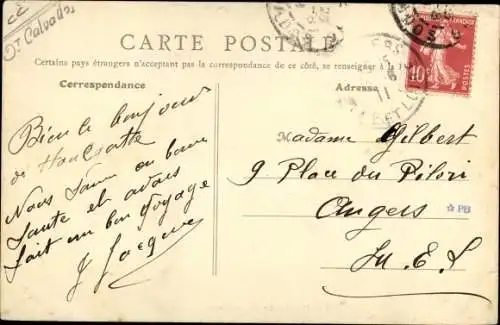 Calvados
CARTE POSTALE
Certains pays étrangers n'acceptant pas la correspondance de ce côté, se renseigner
Correspondance
Adresse
Bien le bonjour
de
Nous sommes en bonne
Santé et avons
fait un bon Voyage
J Jacques
Madame Gilbert
9 Place du Pilori
Angers
M. E. L
10
POSTES
11
PB